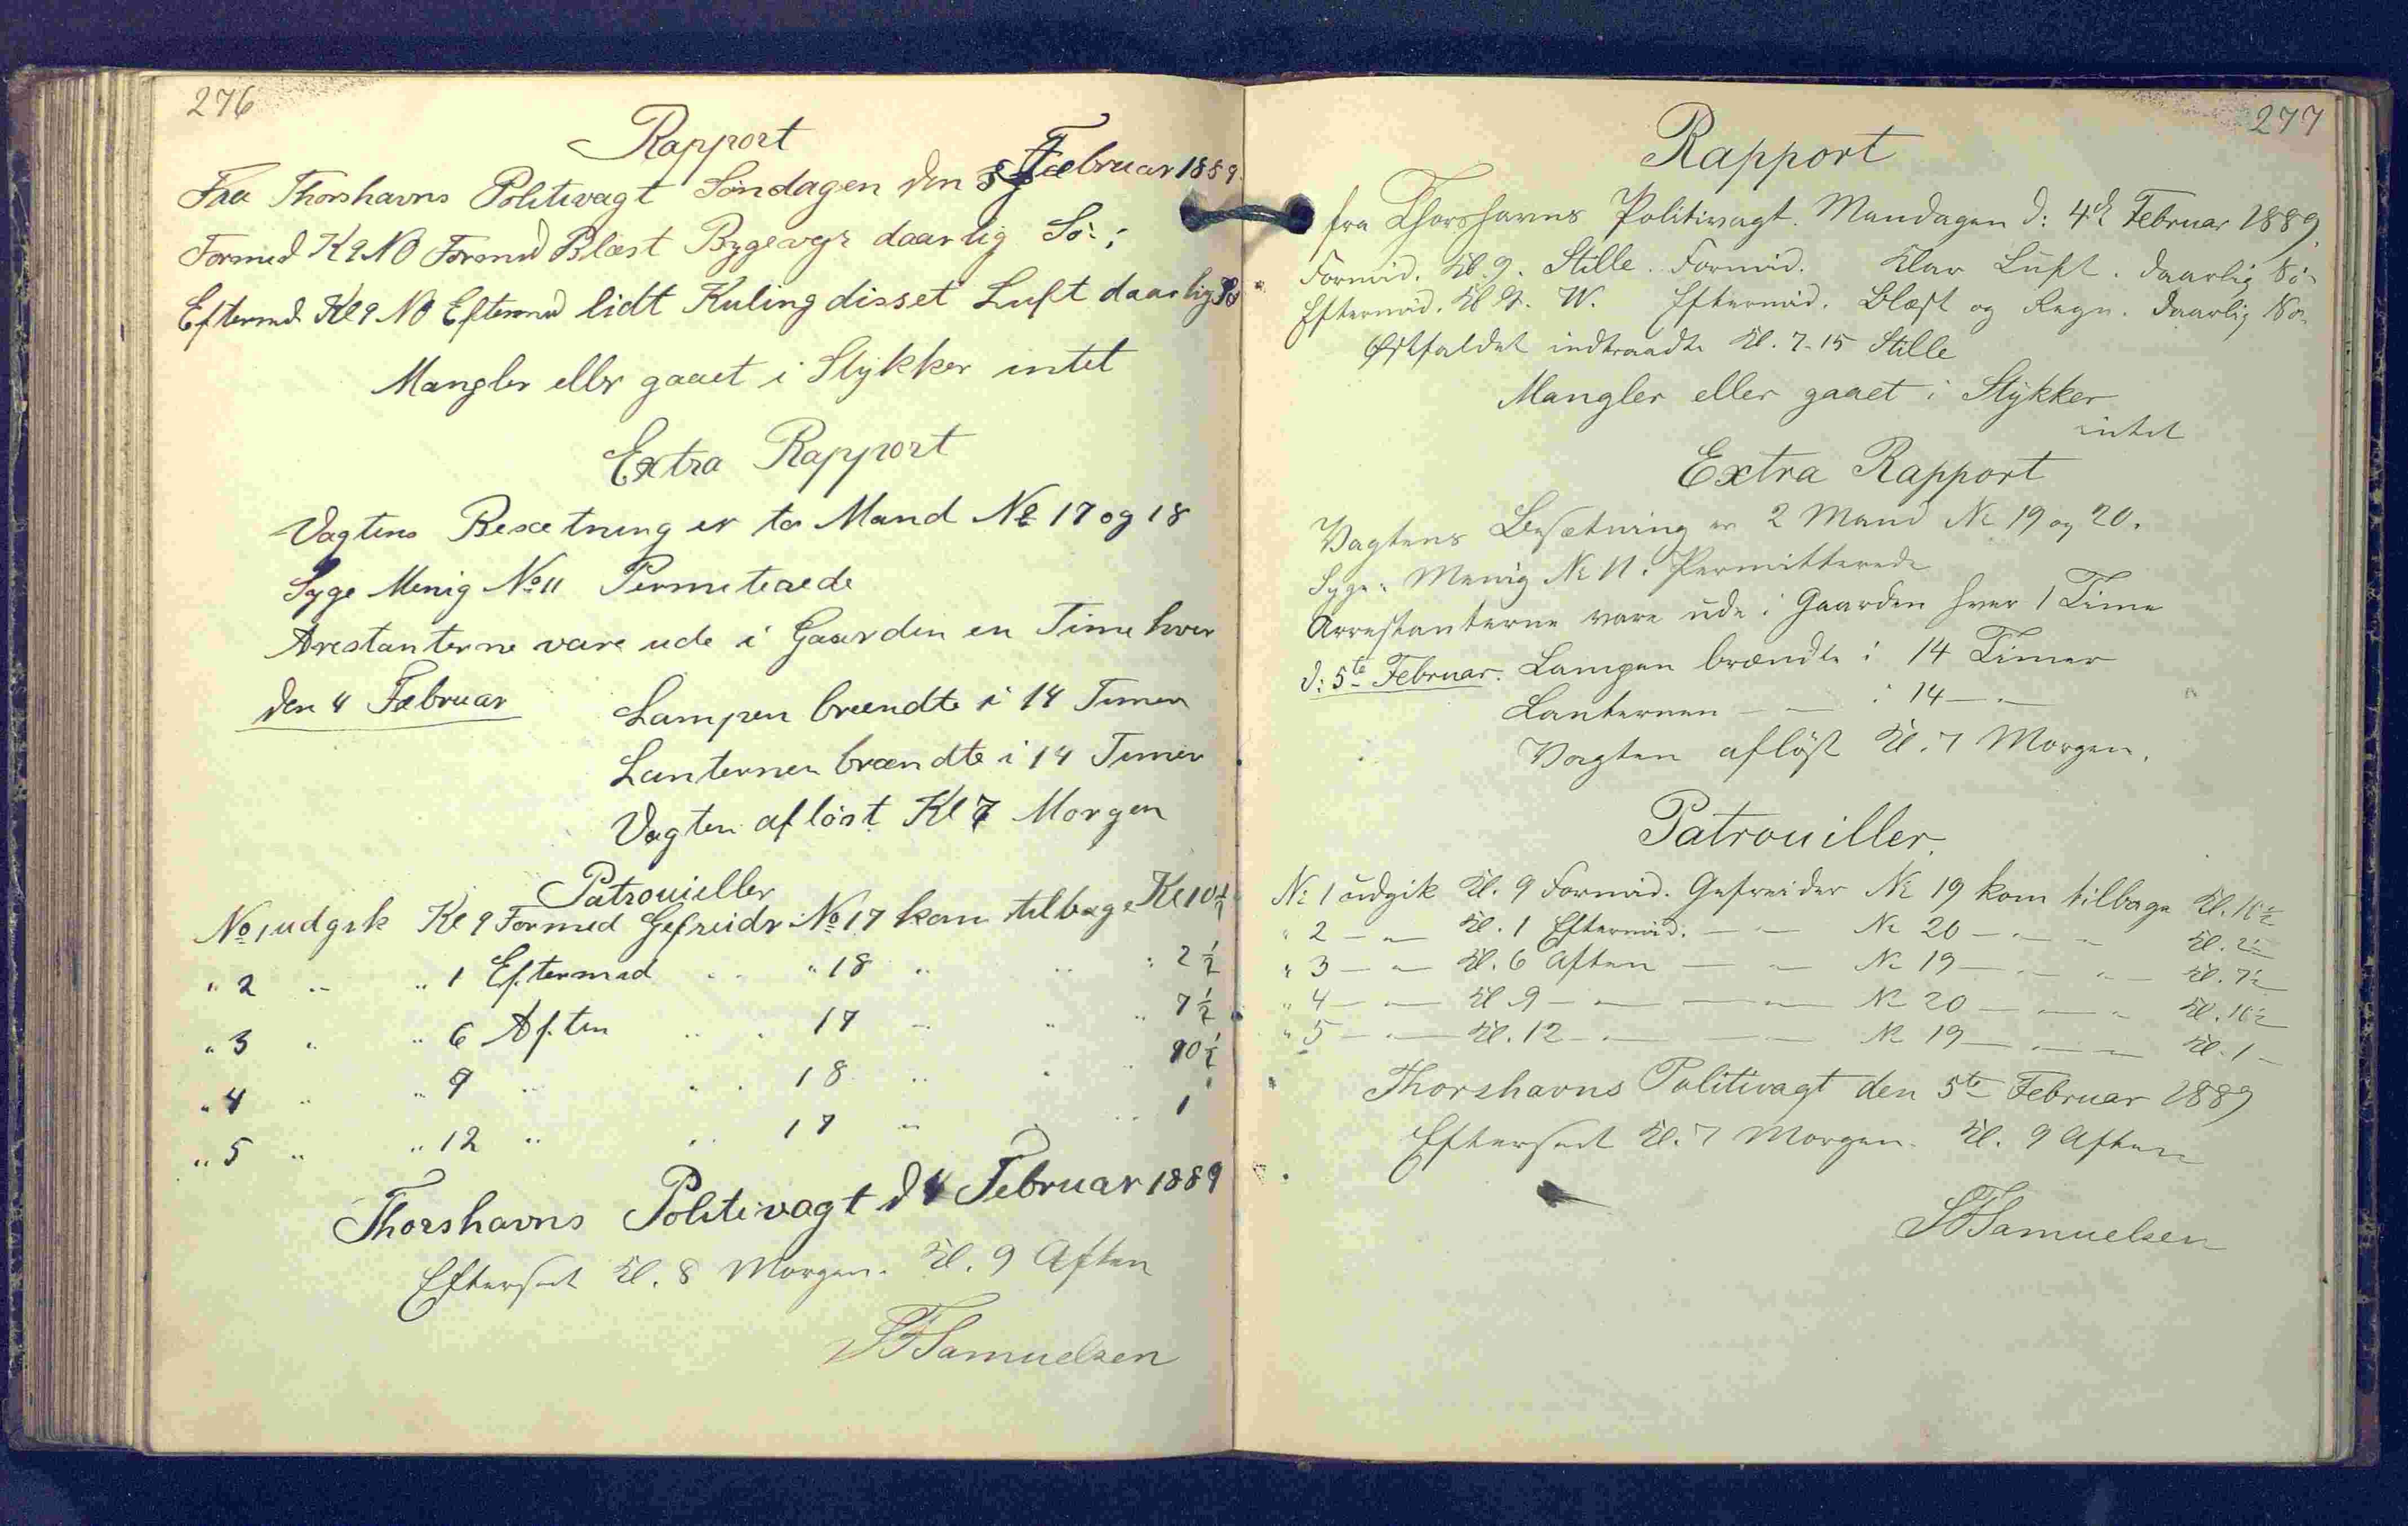 276
Rapport
Fra Thorshavns Politivagt Søndagen den 3 Februar 1889.
Formd Kl 9 NO Formd Blæst Bygevejr daarlig Sö;
Eftermd Kl 9 NO Eftermd lidt Kuling disset Luft daarlig Sö
Mangler eller gaaet i Stykker intet
Extra Rapport
Vagtens Besætning er to Mand No 17 og 18
Syge Menig No 11 Permiterede
Arestanterne vare ude i Gaarden en Time hver
den 4 Februar Lampen brændte i 14 Timer
Lanternen brændte i 14 Timer
Vagten afløst Kl 7 Morgen
Patrouieller
No 1 udgik Kl 9 Formd Gefreider No 17 kom tilbage Kl 10 1/2
" 2 " " 1 Eftermd " " " 18 " " " 2 1/2
" 3 " " 6 Aften " " 17 " " " 7 1/2
" 4 " " 9 " " " 18 " " " 10 1/2
" 5 " " 12 " " " 17 " " " 1 "
Thorshavns Politivagt d 4 Februar 1889
Efterseet Kl. 8 Morgen. Kl. 9 Aften
Samuelsen
277
Rapport
fra Thorshavns Politivagt. Mandagen d: 4de Februar 1889.
Formid. Kl. 9. Stille. Formid. Klar Luft. daarlig Sö
Eftermid. Kl 9. W. Eftermid. Blæst og Regn. daarlig Sö
Østfaldet indtraadte Kl. 7-15 Stille
Mangler eller gaaet i Stykker
intet
Extra Rapport
Vagtens Besætning er 2 Mand No 19 og 20.
Syge: Menig No 11. Permitterede
Arrestanterne vare ude i Gaarden hver 1 Time
d: 5te Februar. Lampen brændte i 14 Timer
Lanternen — — i 14 — " —
Vagten afløst Kl. 7 Morgen.
Patrouiller
No 1 udgik Kl. 9 Formid. Gefreider No 19 kom tilbage Kl. 10 1/2
" 2 — " — Kl. 1 Eftermid. — " — No 20 — " — " — Kl. 2 1/2
" 3 — " — Kl. 6 Aften — " — No 19 — " — " — Kl. 7 1/2
" 4 — " — Kl. 9 — " — — " — No 20 — " — " — Kl. 10 1/2
" 5 — " — Kl. 12 — " — — " — No 19 — " — " — Kl. 1 —
Thorshavns Politivagt den 5te Februar 1889
Efterseet Kl. 7 Morgen. Kl. 9 Aften
Samuelsen